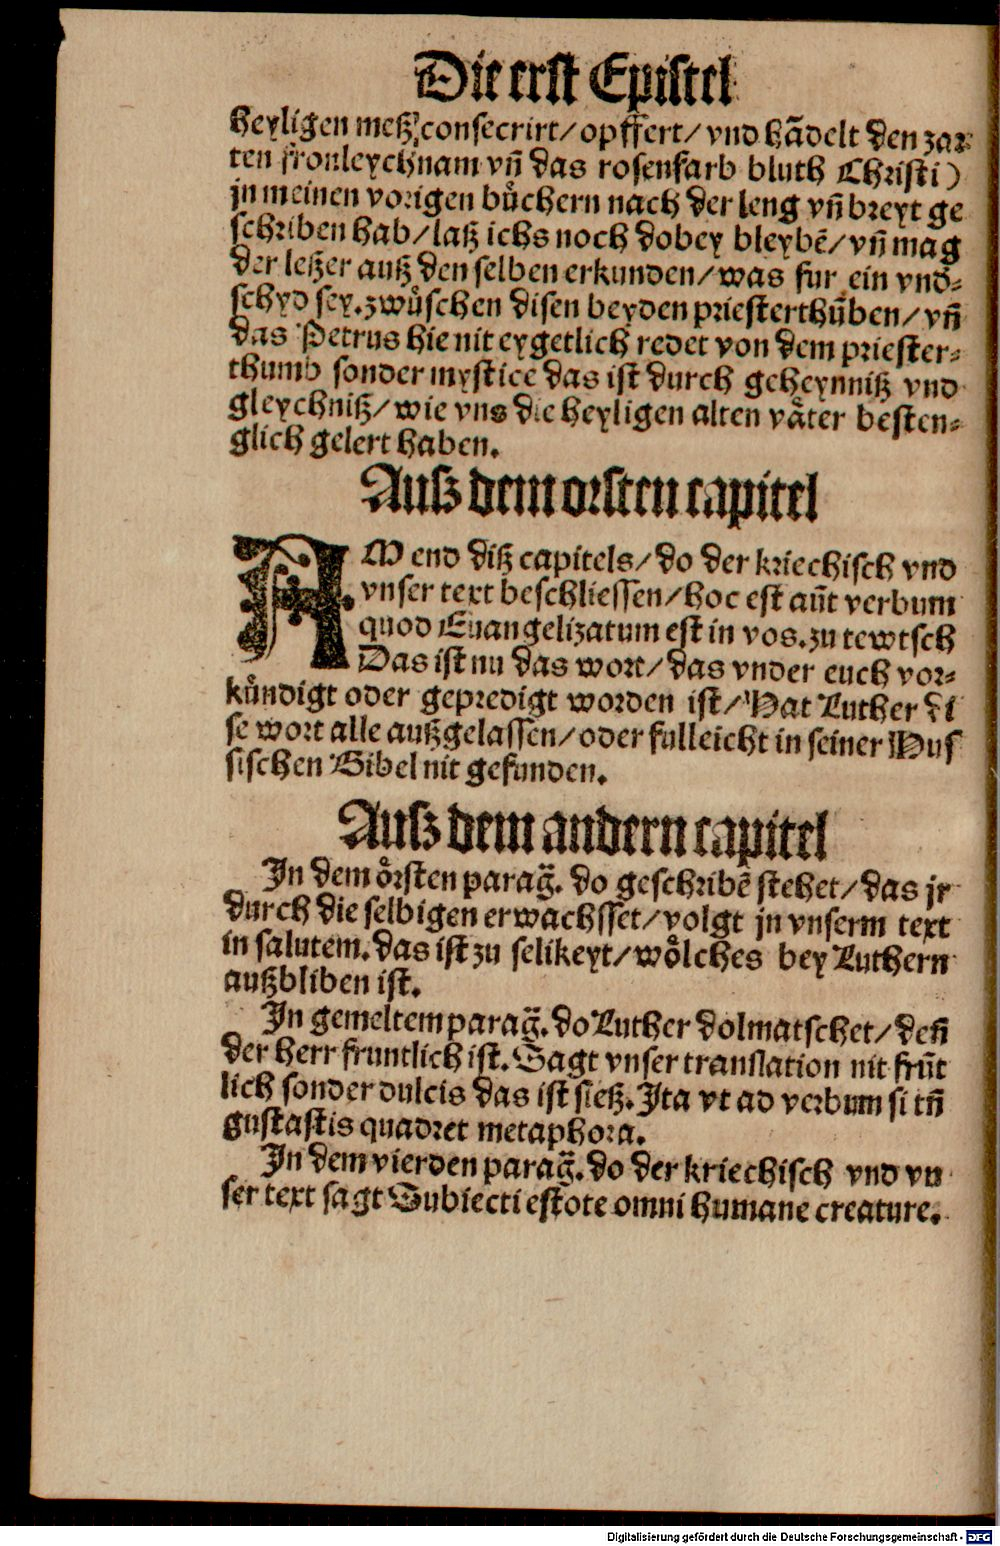 Die erst Epistel
heyligen meß, consecrirt/ opffert/ vnd hãdelt den zar⸗
ten fronleychnam vñ das rosenfarb bluth Christi)
jn meinen vorigen bůchern nach der leng vñ breyt ge
schriben hab/ laß ichs noch dobey bleybẽ/ vñ mag
der leßer auß den selben erkunden/ was fur ein vnd⸗
schyd sey. zwůschen disen beyden priesterthũben/ vñ
das Petrus hie nit eygetlich redet von dem priester⸗
thumb sonder mystice das ist durch geheynniß vnd
gleychniß/ wie vns die heyligen alten våter besten⸗
glich gelert haben.
Auß dem orsten capitel
AM end diß capitels/ do der kriechisch vnd
vnser text beschliessen/ hoc est aũt verbum
quod Euangelizatum est in vos. zu tewtsch
Das ist nu das wort/ das vnder euch vor⸗
kůndigt oder gepredigt worden ist/ Hat Luther di
se wort alle außgelassen/ oder fulleicht in seiner Hus
sischen Bibel nit gefunden.
Auß dem andern capitel
In dem ørsten parag̃. do geschribẽ stehet/ das jr
durch die selbigen erwachsset/ volgt jn vnserm text
in salutem. das ist zu selikeyt/ wølches bey Luthern
außbliben ist.
In gemeltem parag̃. do Luther dolmatschet/ deñ
der herr fruntlich ist. Sagt vnser translation nit frũt
lich sonder dulcis das ist sieß. Ita vt ad verbum si tñ
gustastis quadret metaphora.
In dem vierden parag̃. do der kriechisch vnd vn
ser text sagt Subiecti estote omni humane creature.
Digitalisierung gefördert durch die Deutsche Forschungsgemeinschaft - DFG